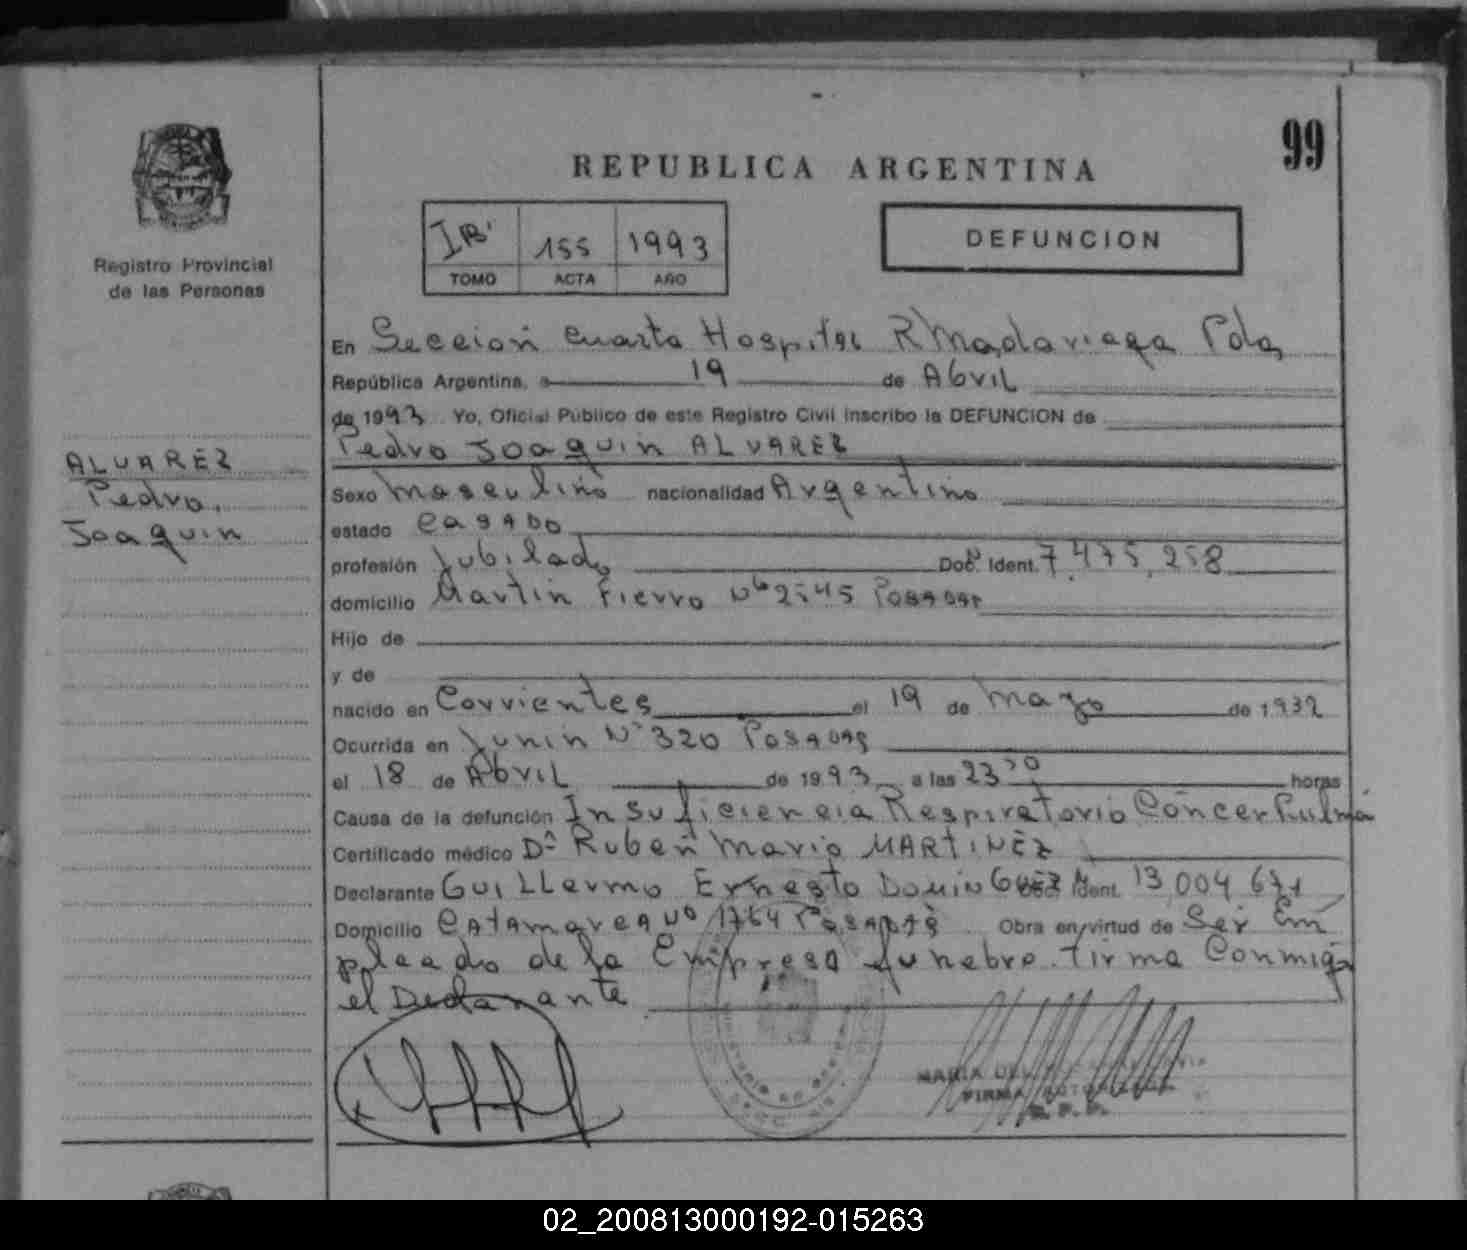 99
REPUBLICA ARGENTINA
IB' 155 1993
TOMO ACTA AÑO
DEFUNCION
Registro Provincial
de las Personas
ALVAREZ
Pedro
Joaquin
En Seccion Cuarta Hospital R Madariaga Pdas
República Argentina, a 19 de Abril
de 1993 Yo, Oficial Público de este Registro Civil inscribo la DEFUNCION de
Pedro Joaquin ALVAREZ
Sexo Masculino nacionalidad Argentino
estado CASADO
profesión Jubilado Doc. Ident. 7.475.258
domicilio Martin Fierro Nº Posadas
Hijo de
y de
nacido en Corrientes el 19 de Mayo de 1932
Ocurrida en Junin Nº 320 Posadas
el 18 de Abril de 1993 a las 23 30 horas
Causa de la defunción Insuficiencia Respiratorio Cóncer Pulmó
Certificado médico Dº Ruben Mario MARTINEZ
Declarante Guillermo Ernesto DOMINGUEZ Ident. 13.004.671
Domicilio Catamarca Nº 1764 Posadas Obra en virtud de Ser Em
pleado de la Empresa funebre. firma Conmigo
el Declarante
MARIA DEL
FIRMA AUTORIZADA
R. P. P.
02_200813000192-015263